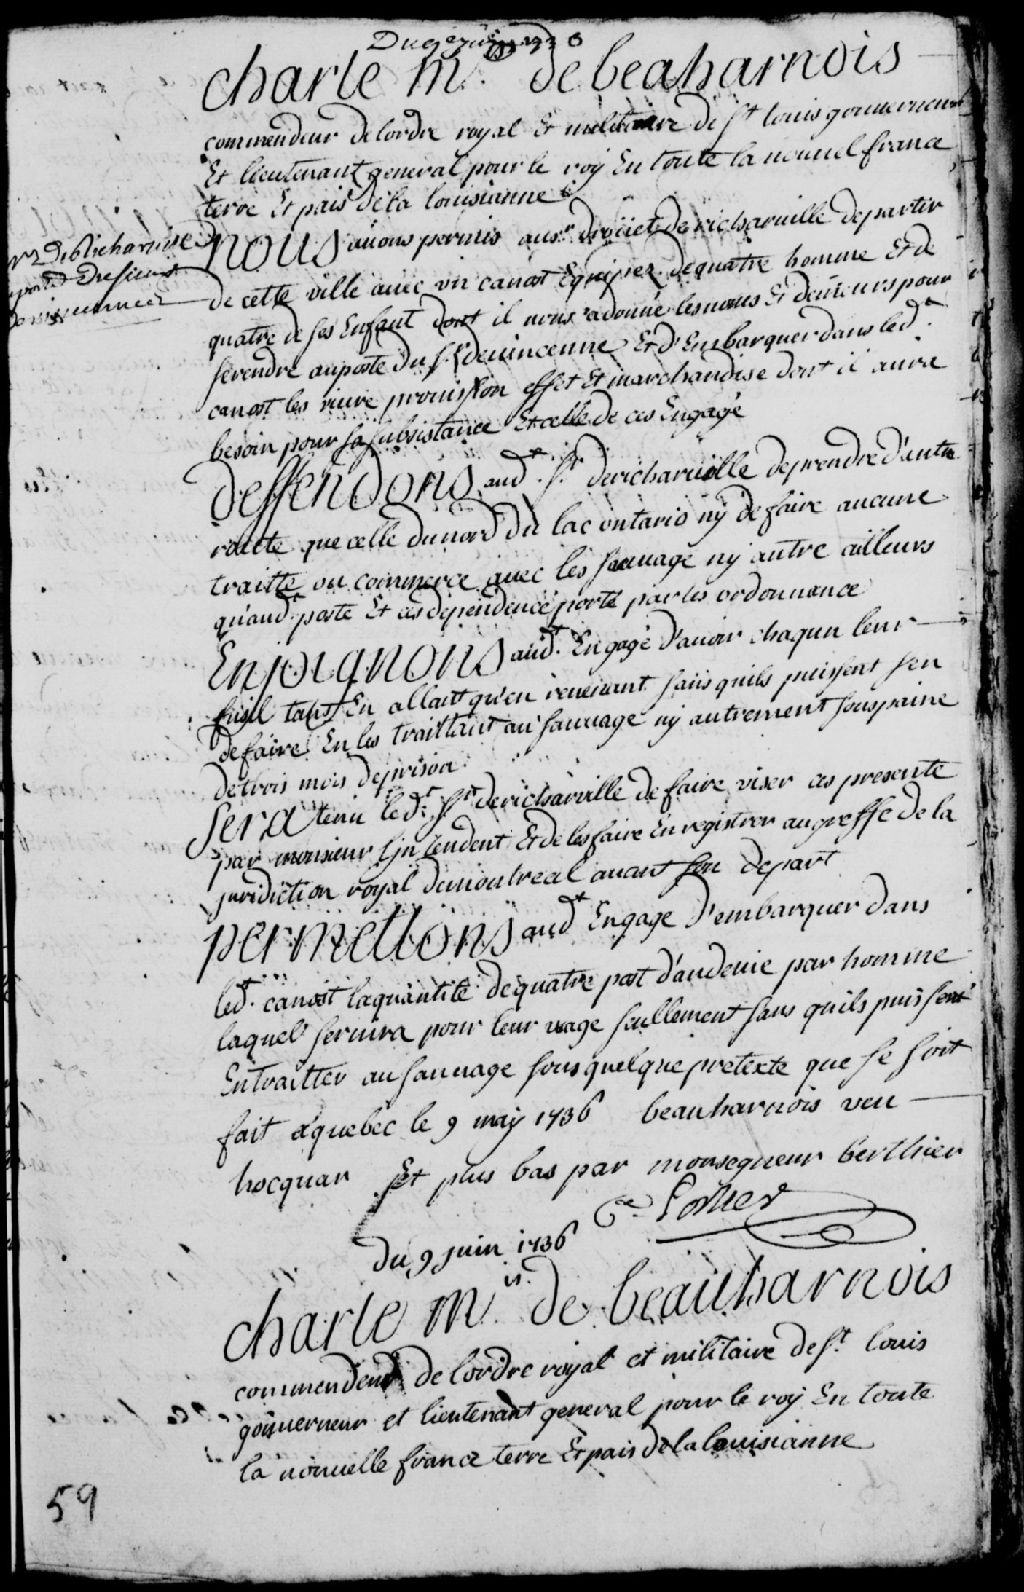 Du 9e juin 1736
charle m.is de beaharnois
commendeur de lordre royal Et militaire de st louis gouverneur
Et lieutenant general pour le roy En toute la nouvel france
terre Et païs de la louisianne
nous avons permis au sr droüet de richarville de partir
de cette ville avec un canot Equiper de quatre homme Et de
quatre de ses Enfant dont il nous a donné les noms Et demeurs pour
se rendre au poste du sr de vincenne Et d'Embarquer dans led.t
canot les vivre provission effet Et marchandise dont il aura
besoin pour sa subsistance Et celle de ces Engagé
mr De Richarville
Du sieur
De vincennes
deffendons aud.t sr. de richarville de prendre d'autre
routte que celle du nord du lac ontario ny de faire aucune
traitte ou commerce avec les sauvage ny autre ailleurs
qu'aud.t poste Et ces dependence porté par les ordonnance
Enjoignons aud.t Engagé d'avoir chaqun leur
fusil tant En allant qu'en revenant sans quils puissent sen
defaire En les traittant au sauvage ny autrement sous paine
de trois mois de prison
sera tenu led.t sr de richarville de faire viser ces presente
par monsieur Lintendent Et de les faire Enregistrer au greffe de la
juridiction royal de montreal avant son depart
permettons aud.t Engage d'embarquer dans
led.t canost la quantité de quatre post d'audevie par homme
laquel servira pour leur usage seullement sans quils puissent
En traitter au sauvage sous quelque pretexte que se soit
fait a quebec le 9 may 1736 beauharnois veu
hocquar Et plus bas par monsegneur berthier
Porlier
du 9 juin 1736
charle m.is de beauharnois
commendeur de lordre royal et militaire de st. louis
gouverneur et lieutenant general pour le roy En toute
la nouvelle france terre Et païs de la louisianne
59